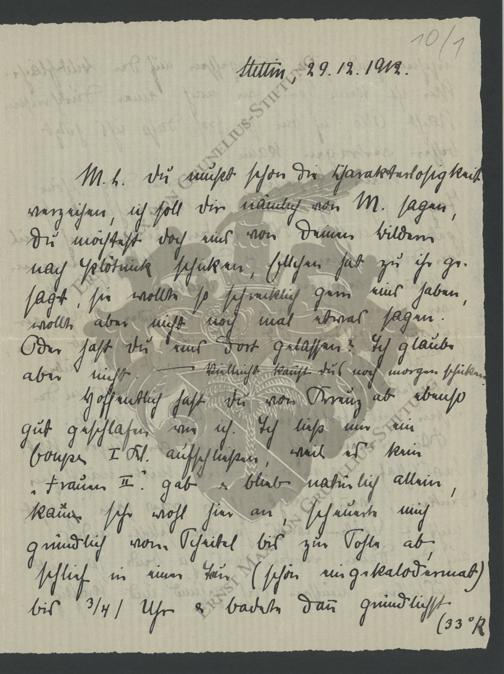 10/1
Stettin, 29.12.1912.
M. L. Du mußt schon die Charakterlosigkeit
verzeihen, ich soll Dir nämlich von M. sagen,
Du möchtest doch eins von Deinen Bildern
nach schicken, hat zu ihr ge-
sagt, sie wollte so schrecklich gern eins haben,
wollte aber nicht noch mal etwas sagen.
Oder hast Du eins dort gelassen? Ich glaube
aber nicht — Vielleicht kannst Du's noch morgen schicken.
Hoffentlich hast Du von Kreuz ab ebenso
gut geschlafen wie ich. Ich ließ mir ein
Coupee I Kl. aufschließen, weil es kein
"Frauen II." gab & blieb natürlich allein,
kam sehr wohl hier an, scheuerte mich
gründlich vom Scheitel bis zur Sohle ab,
schlief in einer Tour (schön eingekalodermat)
bis 3/4 1 Uhr & badete dann gründlichst
(33° R
ERNST MAX VON GRUNELIUS-STIFTUNG
ERNST MAX VON GRUNELIUS-STIFTUNG